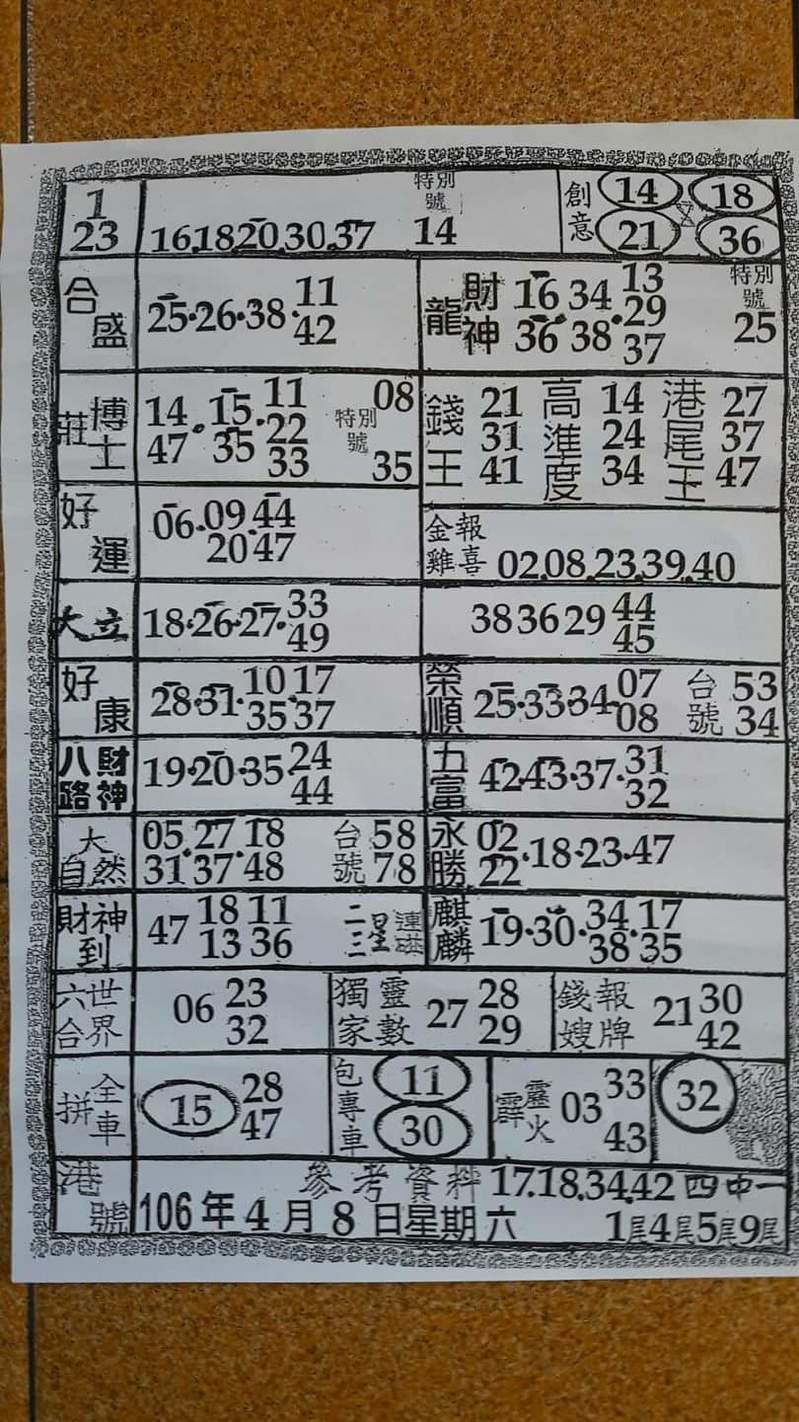 1
23
16.18.20.30.37
特別號
14
創意
14
18
21
36
合盛
25.26.38.
11
42
龍財神
16 34 13
29
36.38.37
特別號
25
莊博士
14.15.11
22
47 35 33
特別號
08
35
錢王
21
31
41
高準度
14
24
34
港尾王
27
37
47
好運
06.09.44
20 47
金雞報喜
02.08.23.39.40
大立
18.26.27.33
49
38 36 29 44
45
好康
28.31.10.17
35 37
榮順
25.33.34.07
08
台號
53
34
八路財神
19.20.35.24
44
五富
42.43.37.31
32
大自然
05.27.18
31.37.48
台號
58
78
永勝
02
22.18.23.47
財神到
47 18 11
13 36
二三星連碰
麒麟
19.30.34.17
38 35
六合世界
06 23
32
獨家靈數
27 28
29
錢嫂報牌
21 30
42
拼全車
15
28
47
包專車
11
30
霹靂火
03 33
43
32
港號
參考資料 17.18.34.42 四中一
106年4月8日星期六 1尾4尾5尾9尾